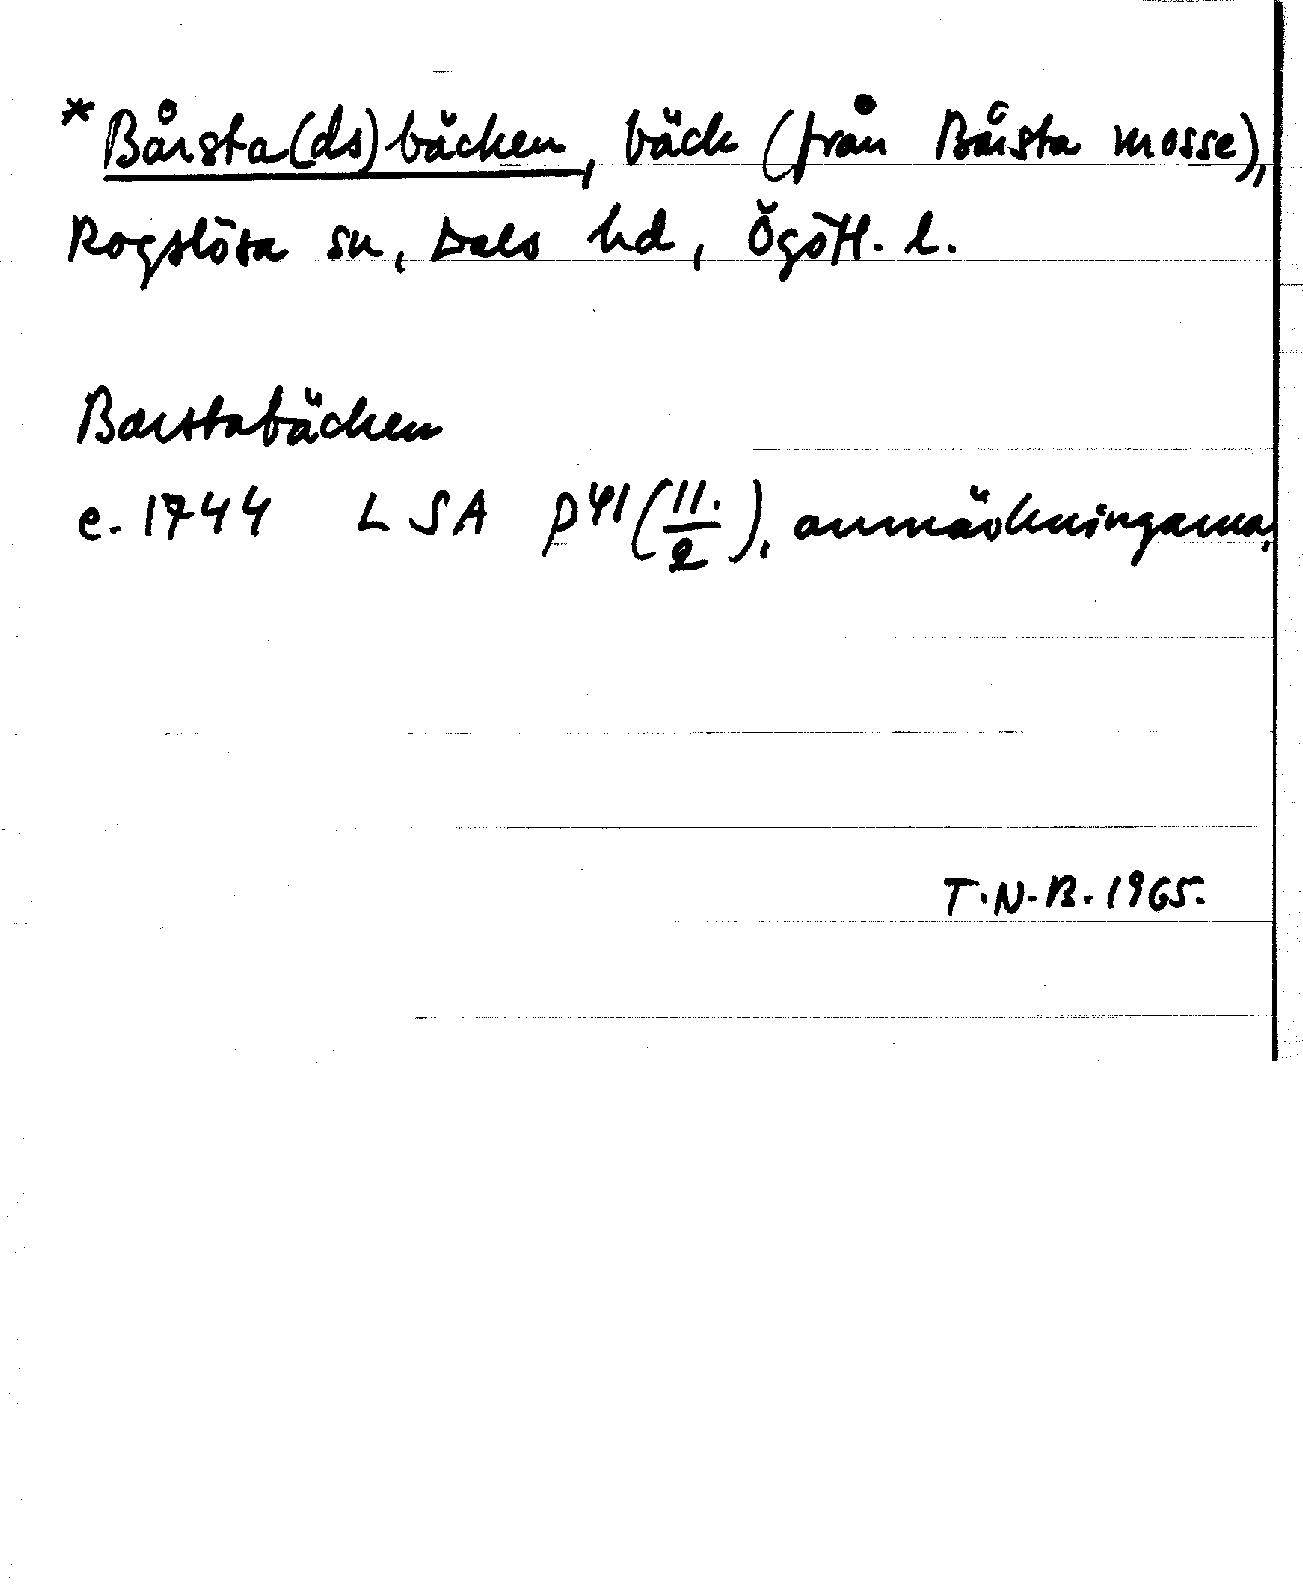 *Bårsta(ds)bäcken, bäck (från Bårsta mosse),
Rogslösa sn, Dals hd, Ögötl. l.
Barstabäcken
c. 1744 LSA P41 (11./2), anmärkningarna.
T.N.B. 1965.